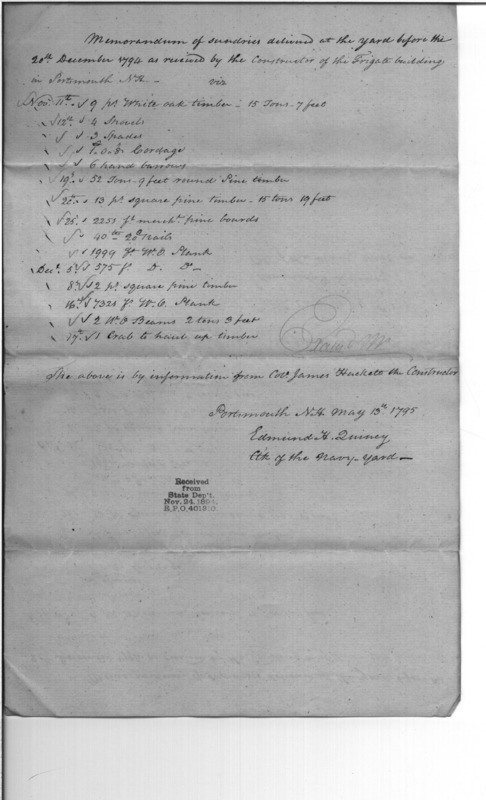 Memorandum of sundries delivered at the Yard before the
20th December 1794 as received by the Constructor of the Frigate building
in Portsmouth N.H. — viz
Nov. 11th 9 ps White oak timber - 15 Tons - 7 feet
12th 4 Shovels
3 Spades
Cordage
6 hand barrows
19 52 Tons - 9 feet round Pine timber
13 ps square pine timber - 15 tons 19 feet
25 2253 ft mercht pine boards
40 20d nails
1999 ft W.O. Plank
Decr 5 375 f D. Do —
8 2 ps square pine timber
16 7320 f W.O. Plank
2 W.O Beams 2 tons 3 feet
17 1 Crab to haul up timber
The above is by information from Colo. James Hackett the Constructor
Portsmouth N.H. May 13th 1795
Edmund H. Quincy
Clk of the Navy-Yard —
Received
from
State Dep't.
Nov. 24,